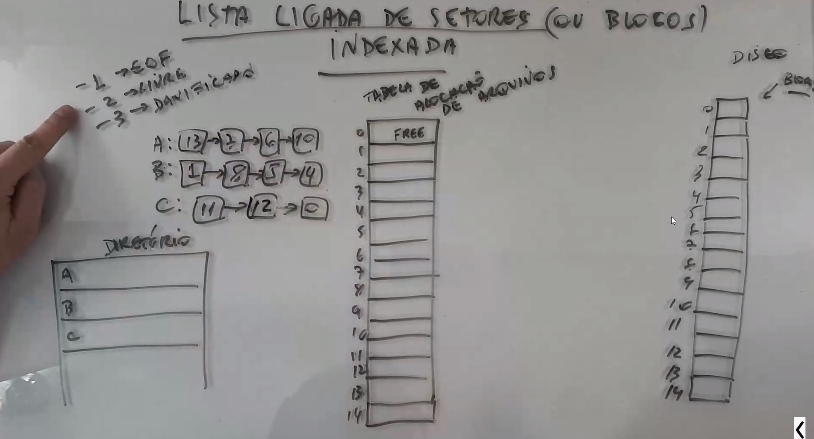 LISTA LIGADA DE SETORES (OU BLOCOS)
INDEXADA
-1 → EOF
-2 → LIVRE
-3 → DANIFICADO
A: 13 → 7 → 6 → 10
B: 1 → 8 → 5 → 4
C: 11 → 12 → 0
DIRETÓRIO
A
B
C
TABELA DE
ALOCAÇÃO
DE ARQUIVOS
0 FREE
1
2
3
4
5
6
7
8
9
10
11
12
13
14
DISCO
0
1
2
3
4
5
6
7
8
9
10
11
12
13
14